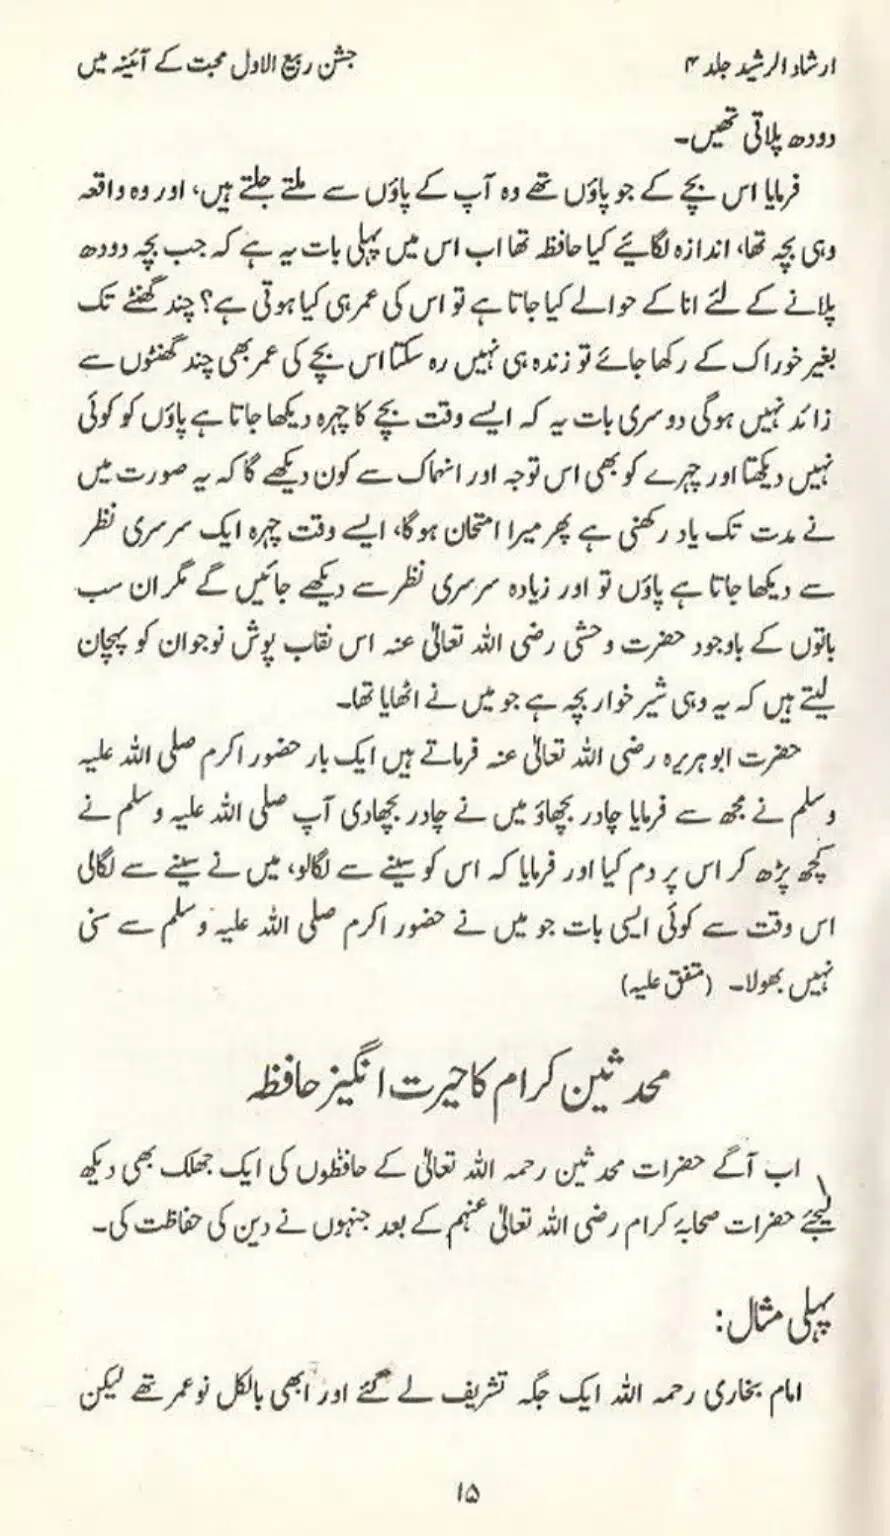 ارشاد الرشید جلد ۴ جشن ربیع الاول محبت کے آئینہ میں
دودھ پلاتی تھیں۔
فرمایا اس بچے کے جو پاؤں تھے وہ آپ کے پاؤں سے ملتے جلتے ہیں، اور وہ واقعہ
وہی بچہ تھا، اندازہ لگائیے کیا حافظہ تھا اب اس میں پہلی بات یہ ہے کہ جب بچہ دودھ
پلانے کے لئے انا کے حوالے کیا جاتا ہے تو اس کی عمر ہی کیا ہوتی ہے؟ چند گھنٹے تک
بغیر خوراک کے رکھا جائے تو زندہ ہی نہیں رہ سکتا اس بچے کی عمر بھی چند گھنٹوں سے
زائد نہیں ہوگی دوسری بات یہ کہ ایسے وقت بچے کا چہرہ دیکھا جاتا ہے پاؤں کو کوئی
نہیں دیکھتا اور چہرے کو بھی اس توجہ اور انہماک سے کون دیکھے گا کہ یہ صورت میں
نے مدت تک یاد رکھنی ہے پھر میرا امتحان ہوگا، ایسے وقت چہرہ ایک سرسری نظر
سے دیکھا جاتا ہے پاؤں تو اور زیادہ سرسری نظر سے دیکھے جائیں گے مگر ان سب
باتوں کے باوجود حضرت وحشی رضی اللہ تعالیٰ عنہ اس نقاب پوش نوجوان کو پہچان
لیتے ہیں کہ یہ وہی شیر خوار بچہ ہے جو میں نے اٹھایا تھا۔
حضرت ابوہریرہ رضی اللہ تعالیٰ عنہ فرماتے ہیں ایک بار حضور اکرم صلی اللہ علیہ
وسلم نے مجھ سے فرمایا چادر بچھاؤ میں نے چادر بچھادی آپ صلی اللہ علیہ وسلم نے
کچھ پڑھ کر اس پر دم کیا اور فرمایا کہ اس کو سینے سے لگالو، میں نے سینے سے لگالی
اس وقت سے کوئی ایسی بات جو میں نے حضور اکرم صلی اللہ علیہ وسلم سے سنی
نہیں بھولا۔ (متفق علیہ)
محدثین کرام کا حیرت انگیز حافظہ
اب آگے حضرات محدثین رحمہ اللہ تعالیٰ کے حافظوں کی ایک جھلک بھی دیکھ
لیجئے حضرات صحابۂ کرام رضی اللہ تعالیٰ عنہم کے بعد جنہوں نے دین کی حفاظت کی۔
پہلی مثال:
امام بخاری رحمہ اللہ ایک جگہ تشریف لے گئے اور ابھی بالکل نوعمر تھے لیکن
۱۵